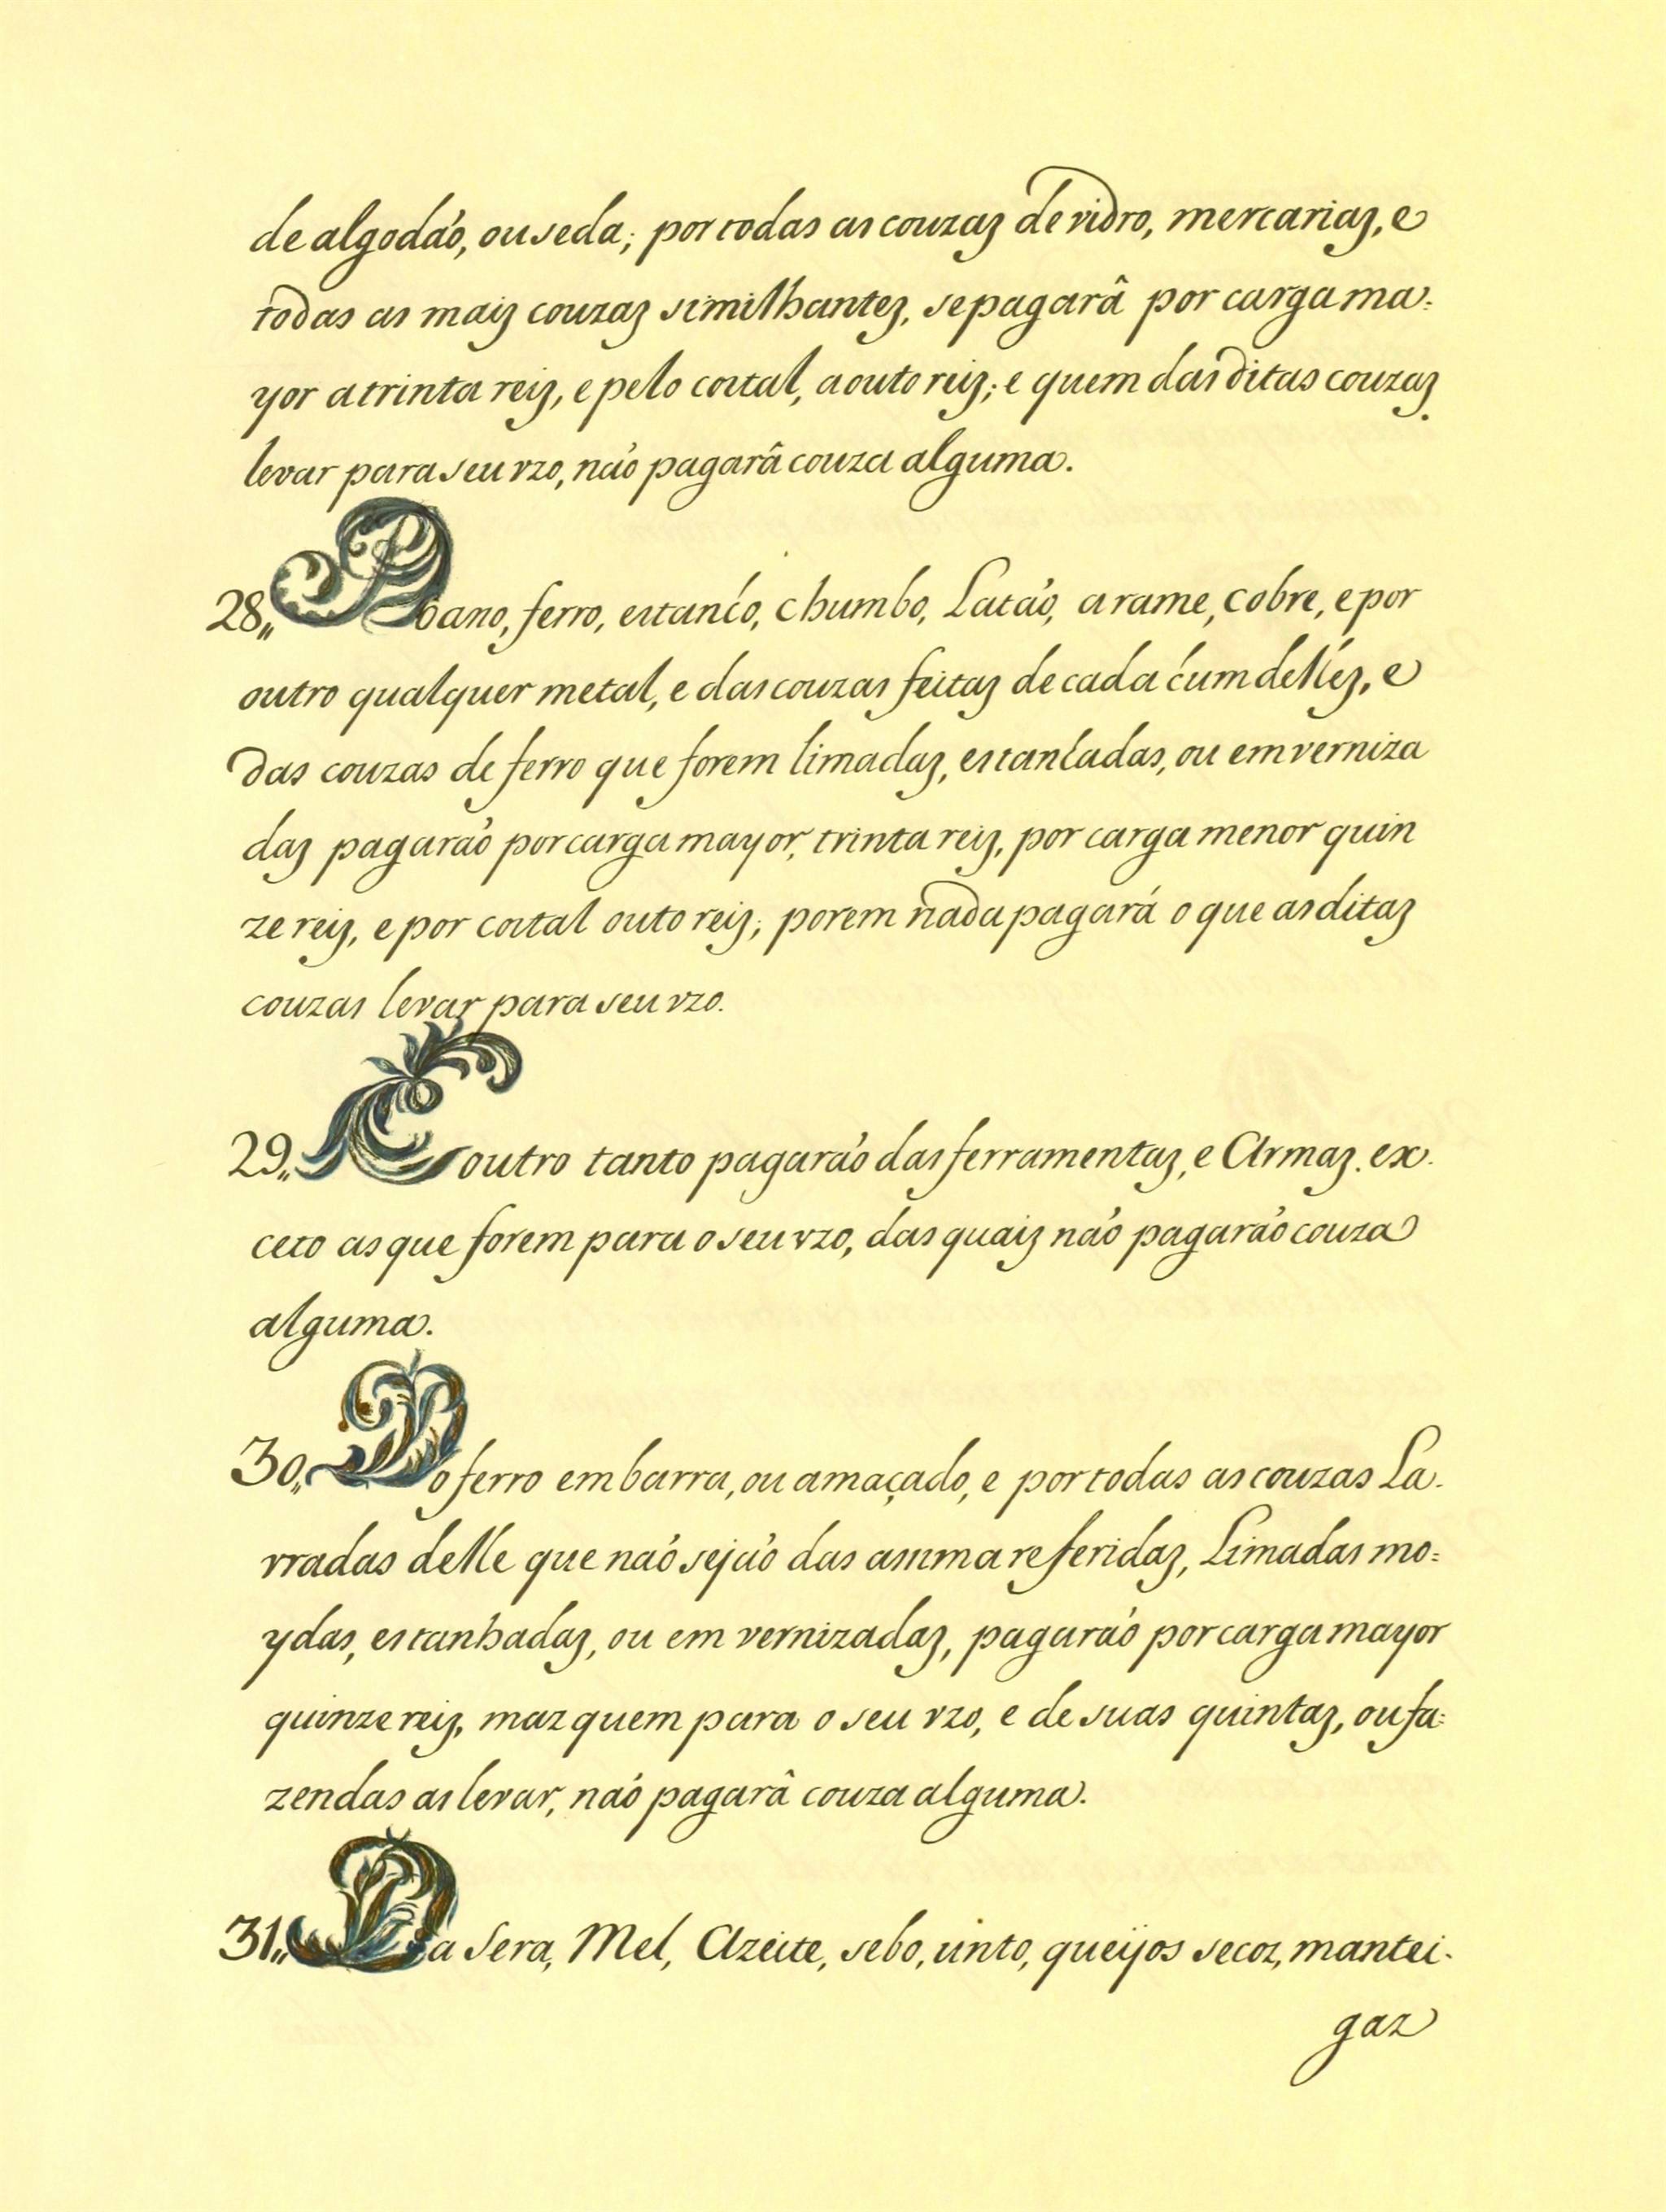 de algodaó, ou seda; por todas as couzaz de vidro, mercariaz, e
todas as maiz couzaz similhantez, se pagarâ por carga ma-
yor a trinta reiz, e pelo costal, a outo reiz; e quem das ditas couzaz
levar para seu vzo, naó pagarâ couza alguma.
28,, ferro, estanho, chumbo, Lataó, arame, cobre, e por
outro qualquer metal, e das couzas feitaz de cada hum dellez, e
das couzas de ferro que forem limadaz, estanhadas, ou em verniza
daz pagaraó por carga mayor, trinta reiz, por carga menor quin
ze reiz, e por costal outo reiz; porem nada pagará o que as ditaz
couzas levar para seu vzo.
29,, E outro tanto pagaraó das ferramentaz, e Armaz. ex-
ceto as que forem para o seu vzo, das quaiz naó pagaraó couza
alguma.
30,, Do ferro em barra, ou amaçado, e por todas as couzas La-
vradas delle que naó sejaó das assima referidaz, Limadas mo=
ydas, estanhadaz, ou em vernizadaz, pagaraó por carga mayor
quinze reiz, maz quem para o seu vzo, e de suas quintaz, ou fa=
zendas as levar, naó pagarâ couza alguma.
31,, Da Sera, Mel, Azeite, sebo, unto, queijos secoz, mantei-
gaz